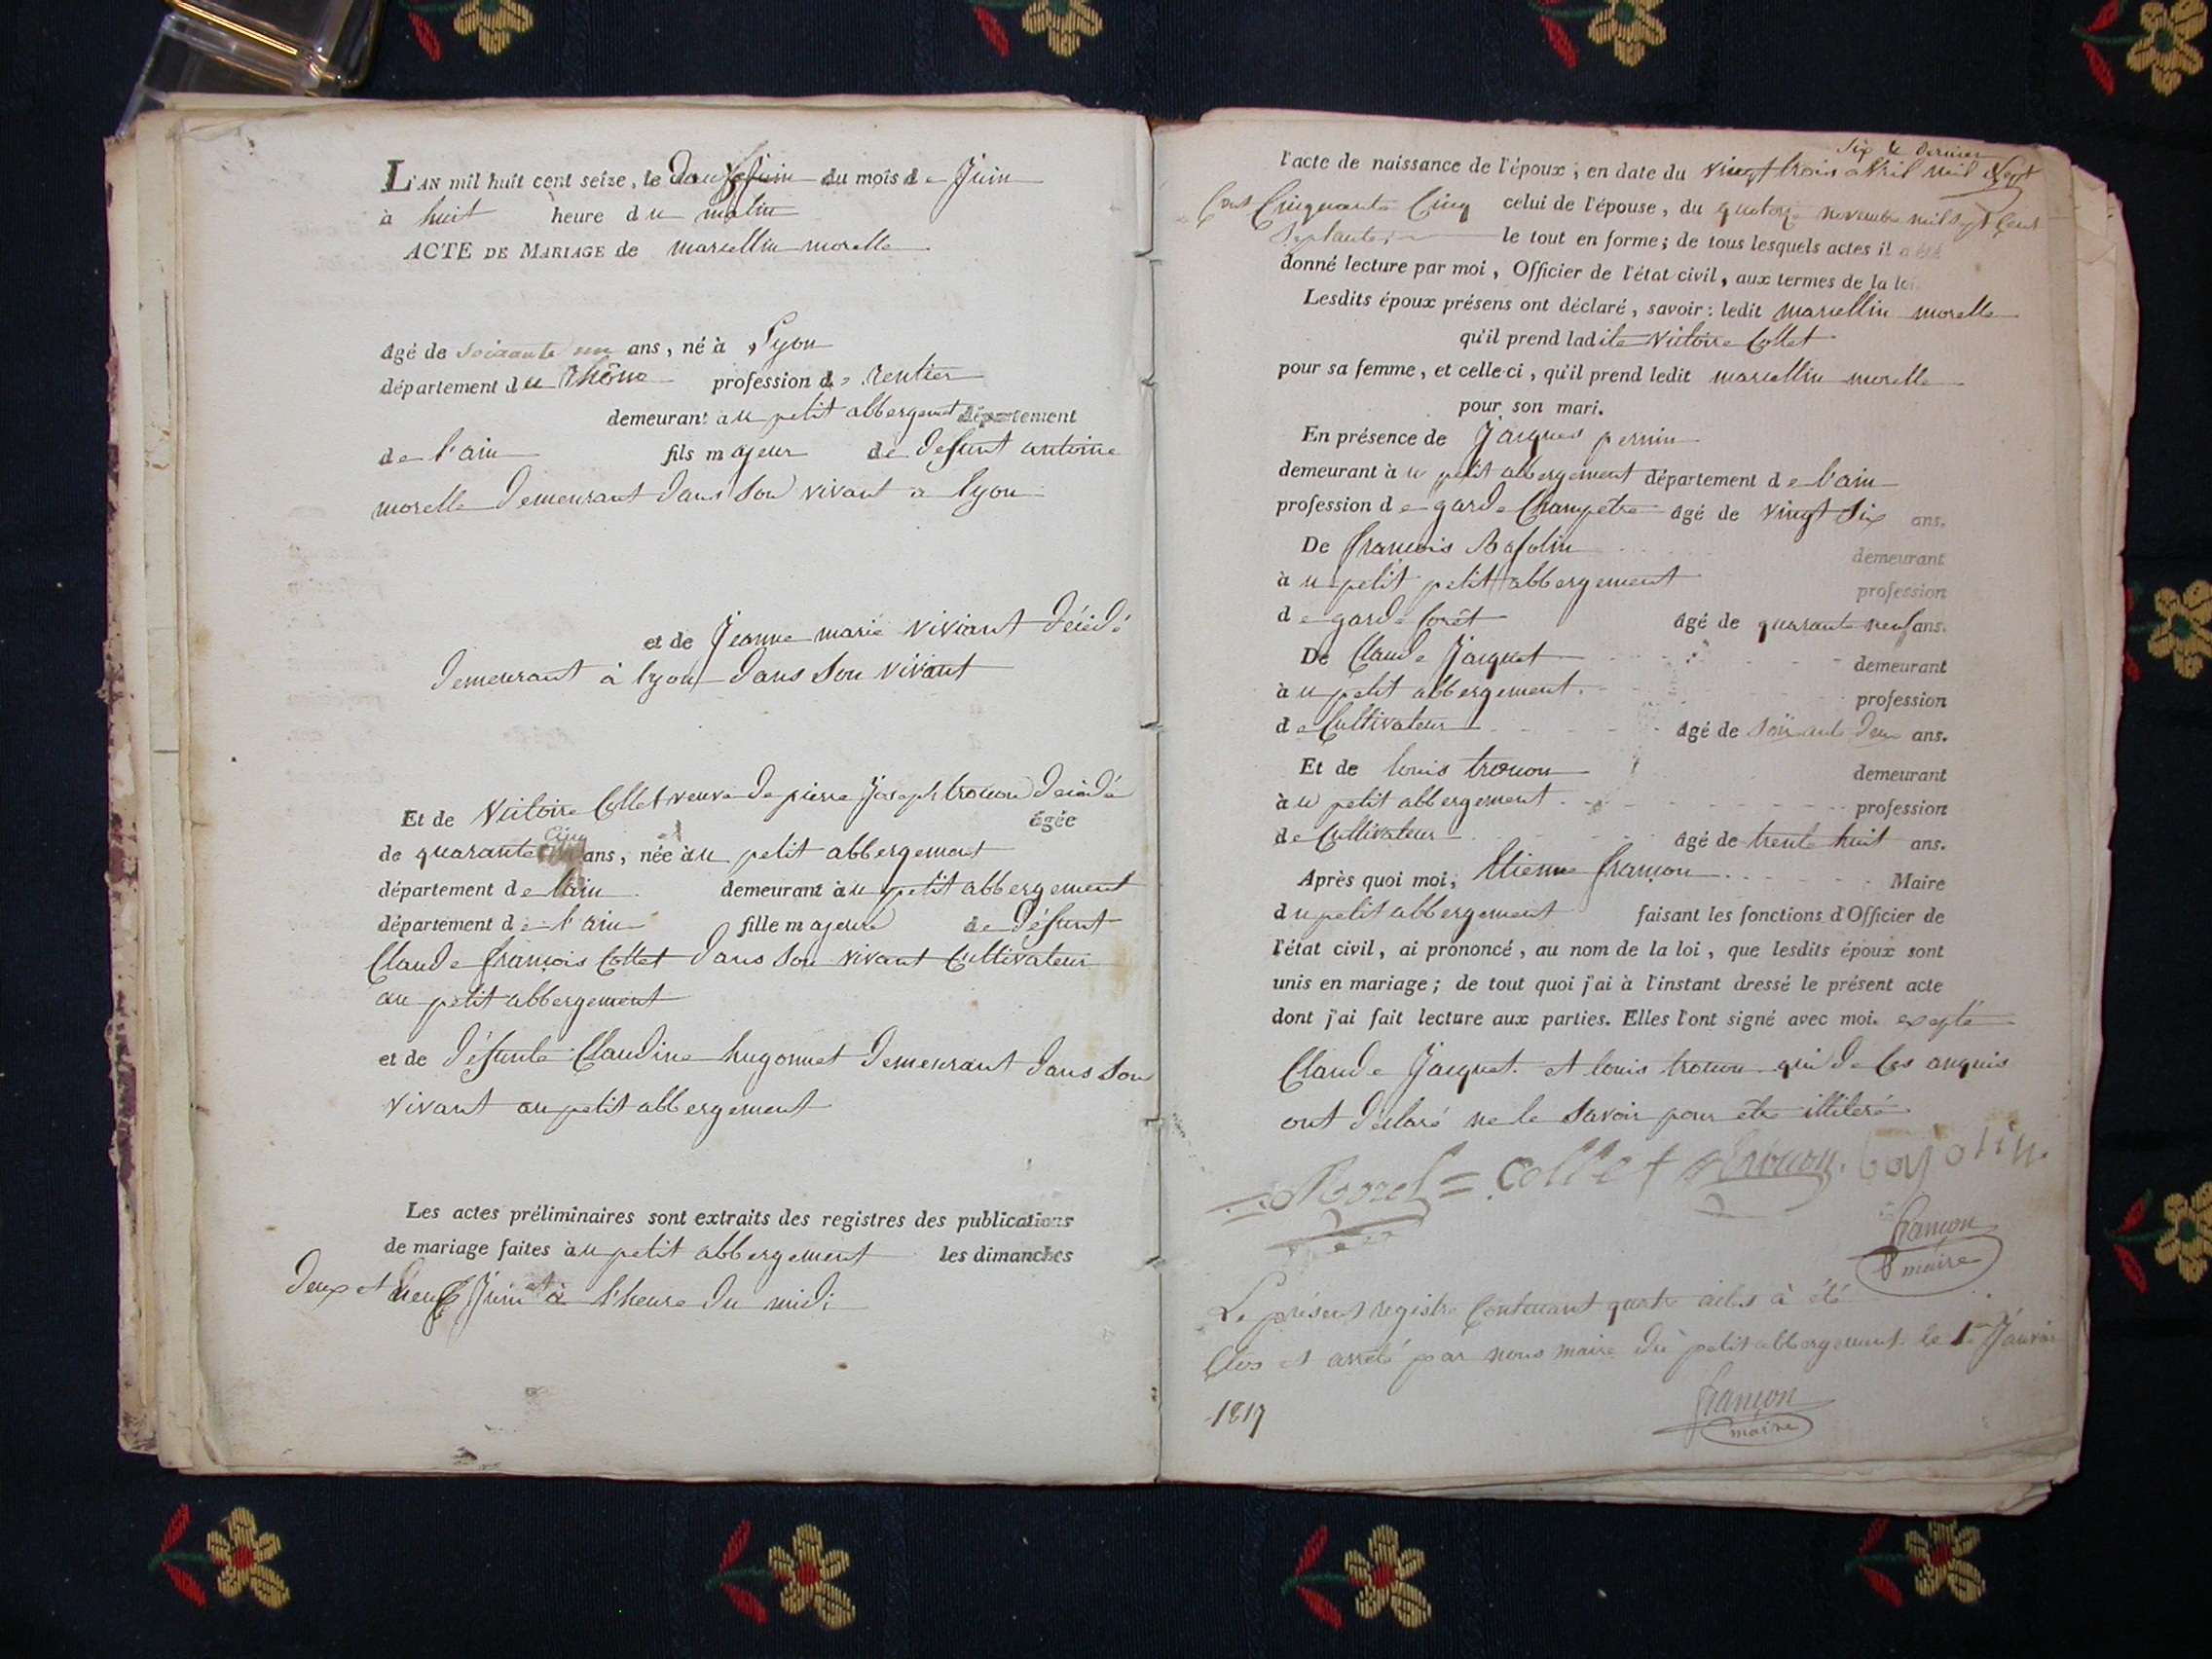 L'AN mil huit cent seize, le du mois de Juin
à huit heure du matin
ACTE DE MARIAGE de marcellin morelle
âgé de soixante un ans, né à Lyon
département du Rhône profession de rentier
demeurant au petit abbergement département
de l'ain fils majeur de defunt antoine
morelle demeurant dans son vivant a lyon
et de Jeanne marie viviant décédé
demeurant à lyon dans son vivant
Et de Victoire Collet veuve de pierre Joseph trouon décédé
âgée
cinq
de quarante ans, née au petit abbergement
département de l'ain demeurant au petit abbergement
département de l'ain fille majeure de défunt
Claude françois Collet dans son vivant Cultivateur
au petit abbergement
et de défunte Claudine hugonnet demeurant dans son
vivant au petit abbergement
Les actes préliminaires sont extraits des registres des publications
de mariage faites au petit abbergement les dimanches
deux et neuf Juin à l'heure du midi
l'acte de naissance de l'époux, en date du vingt trois avril mil sept
Cent Cinquante Cinq celui de l'épouse, du quatorze novembre mil sept Cent
septante le tout en forme; de tous lesquels actes il a été
donné lecture par moi, Officier de l'état civil, aux termes de la loi.
Lesdits époux présens ont déclaré, savoir: ledit marcellin morelle
qu'il prend ladite Victoire Collet
pour sa femme, et celle-ci, qu'il prend ledit marcellin morelle
pour son mari.
En présence de Jacques perrin
demeurant à u petit abbergement département de l'ain
profession de garde Champetre âgé de vingt six ans.
De françois Bajolin demeurant
à u petit petit abbergement profession
de garde forêt âgé de quarante neuf ans.
De Claude Jacquet demeurant
à u petit abbergement profession
de Cultivateur âgé de soixante deux ans.
Et de louis trouon demeurant
à u petit abbergement profession
de Cultivateur âgé de trente huit ans.
Après quoi moi, Etienne françon Maire
du petit abbergement faisant les fonctions d'Officier de
l'état civil, ai prononcé, au nom de la loi, que lesdits époux sont
unis en mariage; de tout quoi j'ai à l'instant dressé le présent acte
dont j'ai fait lecture aux parties. Elles l'ont signé avec moi. excepté
Claude Jacquet et louis trouon qui de ces anquis
ont déclaré ne le savoir pour être illiteré
Morel = Collet trouon. bajolin
françon
maire
Le présent registre Contenant quatre actes à été
Clos et arrété par nous maire du petit abbergement le 1er Janvier
1817
françon
maire